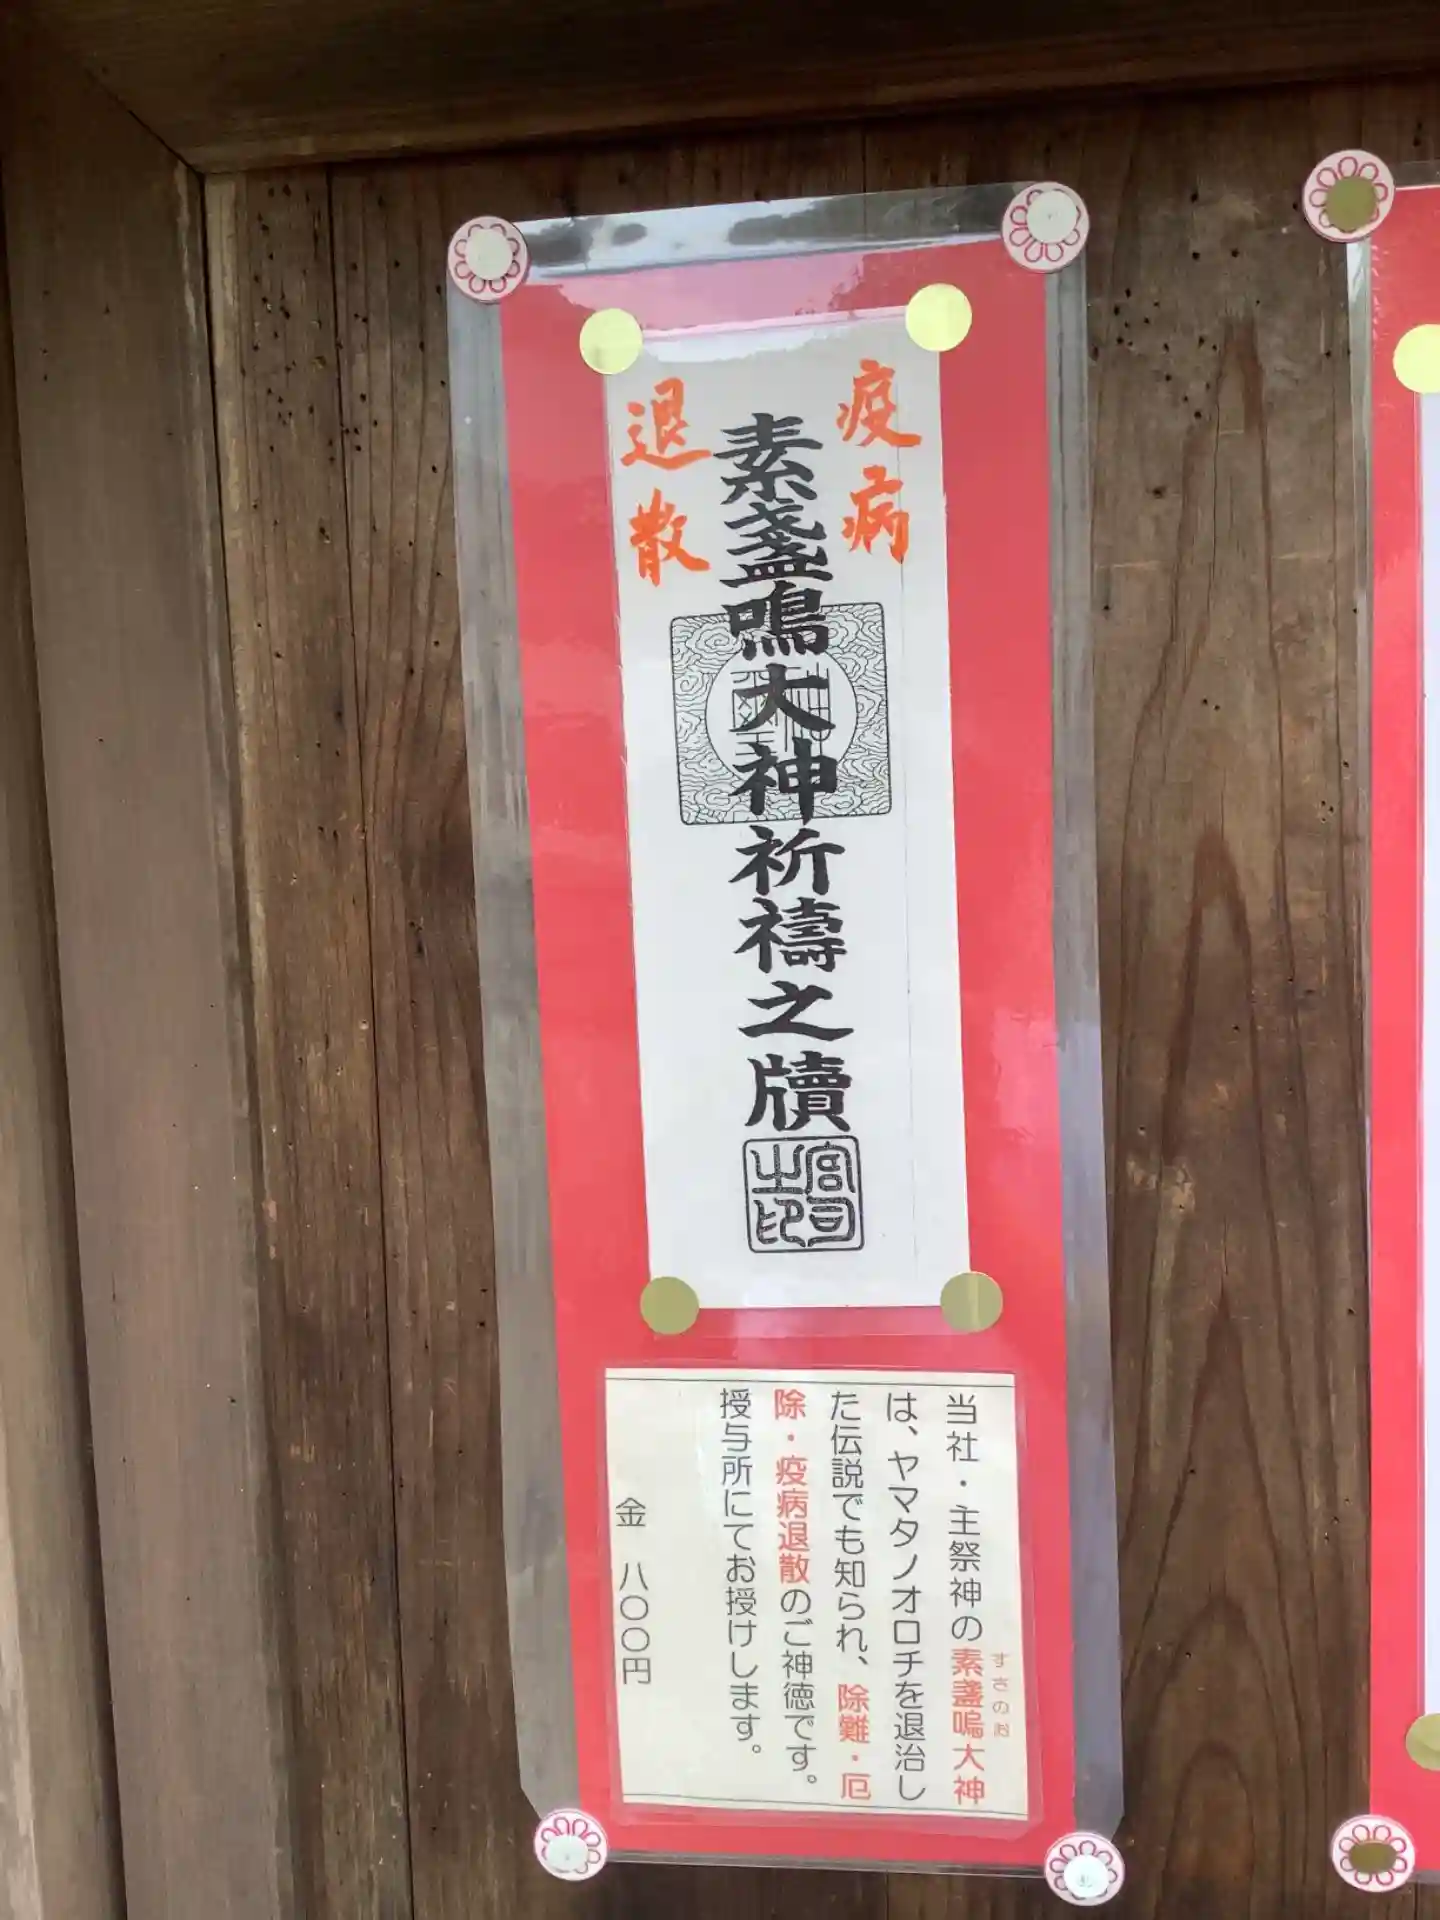 疫病
素盞鳴大神祈禱之牘
退散
宮司
之印
当社・主祭神の素盞嗚大神
すさのお
は、ヤマタノオロチを退治し
た伝説でも知られ、除難・厄
除・疫病退散のご神徳です。
授与所にてお授けします。
金 八〇〇円